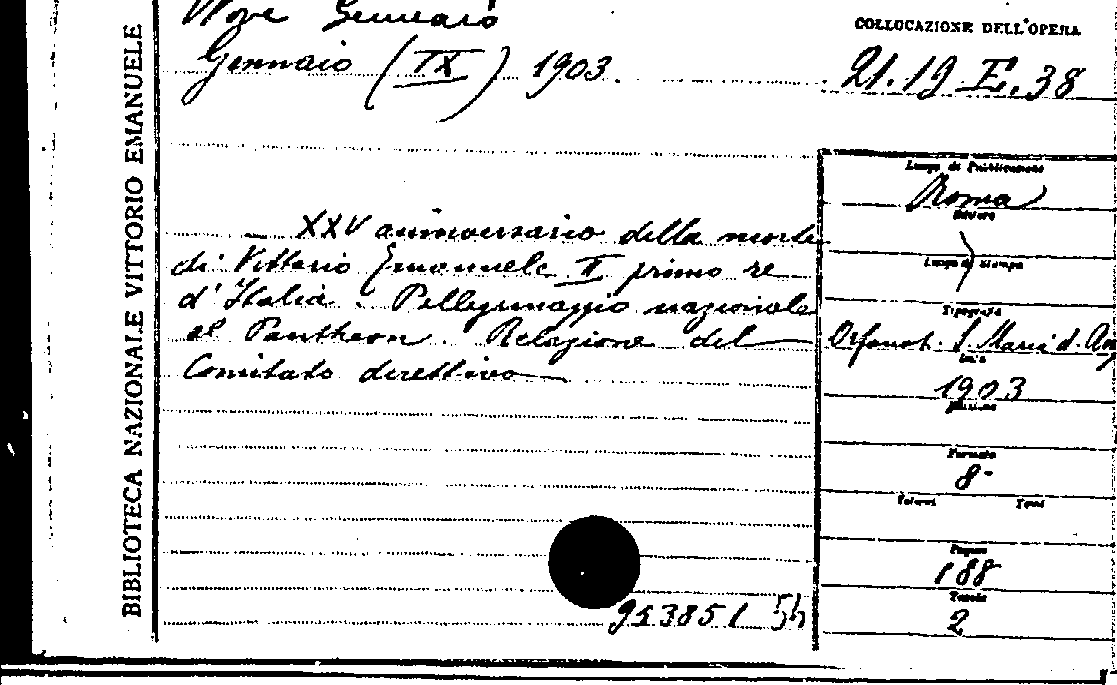 BIBLIOTECA NAZIONALE VITTORIO EMANUELE
Nove Gennaio
Gennaio (IX) 1903.
COLLOCAZIONE DELL'OPERA
21.19 E.38
XXV anniversario della morte
di Vittorio Emanuele II primo re
d'Italia. Pellegrinaggio nazionale
al Pantheon. Relazione del
Comitato direttivo
Luogo di Pubblicazione
Roma
Editore
Luogo di Stampa
Tipografia
Orfanot. S. Maria d. An
Anno
1903
Edizione
Formato
8-
Volumi Tomi
Pagine
188
Tavole
2